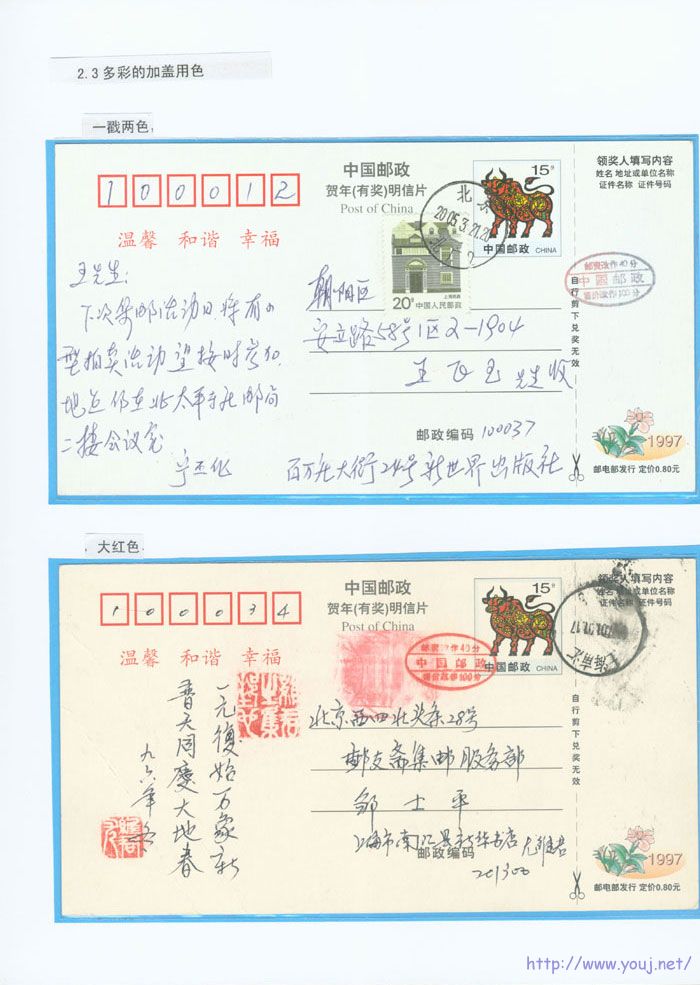 2.3多彩的加盖用色
一戳两色
100012
中国邮政
贺年(有奖)明信片
Post of China
15分
中国邮政 CHINA
领奖人填写内容
姓名 地址或单位名称
证件名称 证件号码
温馨 和谐 幸福
北京
2005.3.21.20
20分
上海民居
中国人民邮政
邮资改作40分
中国邮政
售价改作100分
自行剪下兑奖无效
王先生:
下次集邮活动日将有小
型拍卖活动望按时参加
地点仍在北太平庄邮局
二楼会议室
朝阳区
安立路58号1区2-1904
王 飞 玉 先生 收
邮政编码 100037
百万庄大街24号新世界出版社
1997
邮电部发行 定价0.80元
大红色
100034
中国邮政
贺年(有奖)明信片
Post of China
15分
中国邮政 CHINA
领奖人填写内容
姓名 地址或单位名称
证件名称 证件号码
温馨 和谐 幸福
邮资改作40分
中国邮政
售价改作100分
自行剪下兑奖无效
一元復始万象新
普天同慶大地春
九六年冬
北京西四北头条28号
邮友斋集邮服务部
邹士平
上海市南汇县新华书店
邮政编码
201300
1997
邮电部发行 定价0.80元
http://www.youj.net/